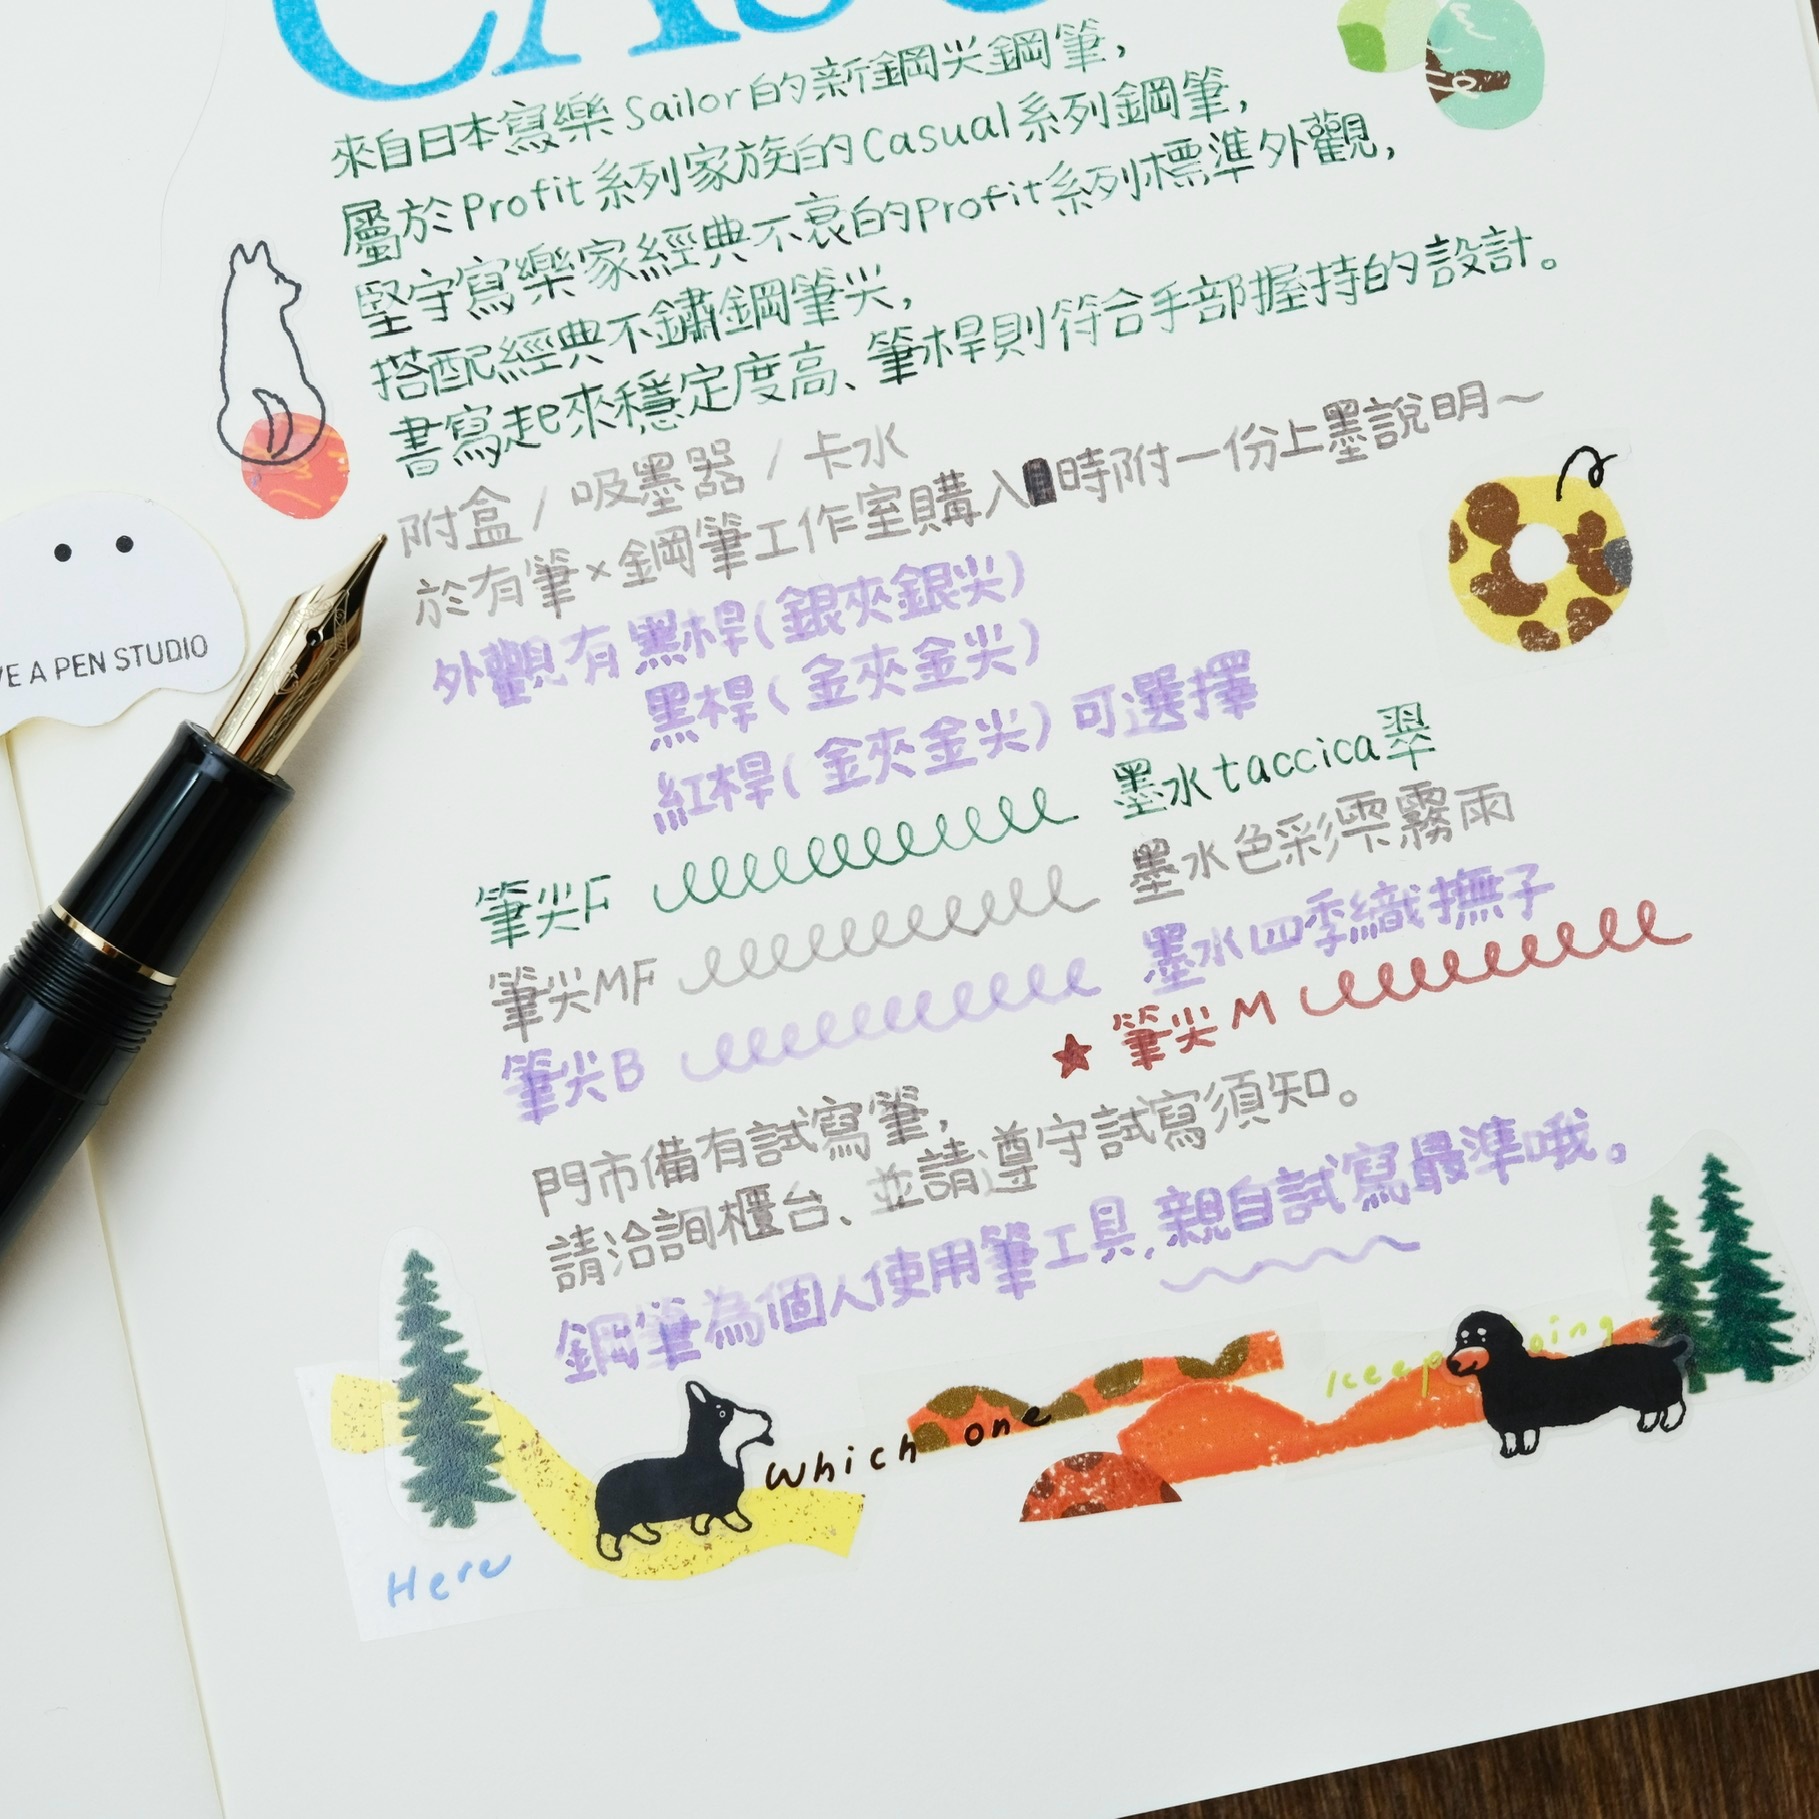 來自日本寫樂Sailor的新鋼尖鋼筆，
屬於Profit系列家族的Casual系列鋼筆，
堅守寫樂家經典不衰的Profit系列標準外觀，
搭配經典不鏽鋼筆尖，
書寫起來穩定度高、筆桿則符合手部握持的設計。
附盒/吸墨器/卡水
於有筆×鋼筆工作室購入時附一份上墨說明～
外觀有黑桿(銀夾銀尖)
黑桿(金夾金尖)
紅桿(金夾金尖)可選擇
筆尖F 墨水taccica翠
筆尖MF 墨水色彩雫霧雨
筆尖B 墨水四季織撫子
★筆尖M
門市備有試寫筆，
請洽詢櫃台、並請遵守試寫須知。
鋼筆為個人使用筆工具，親自試寫最準哦。
VE A PEN STUDIO
which one
keep oing
Here